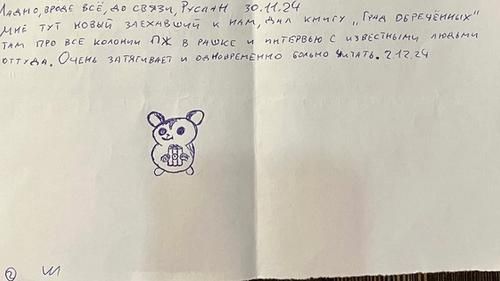 Ладно, вроде всё, до связи, Руслан 30.11.24
Мне тут новый заехавший к нам, дал книгу „Град обречённых"
там про все колонии ПЖ в рашке и интервью с известными людьми
оттуда. Очень затягивает и одновременно больно читать. 2.12.24
2